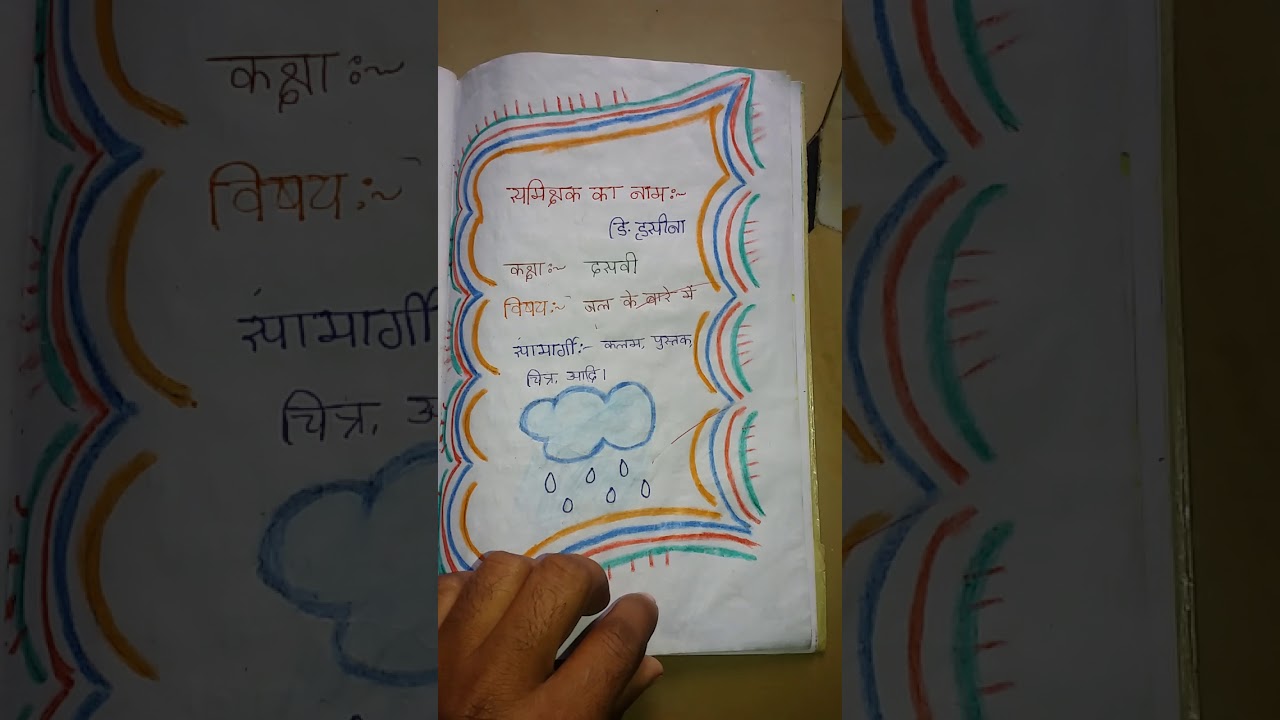 समिक्षक का नाम:~
डि. हसीना
कक्षा:~ दसवी
विषय:~ जल के बारे में
सामार्गी:- कलम, पुस्तक,
चित्र, आदि।